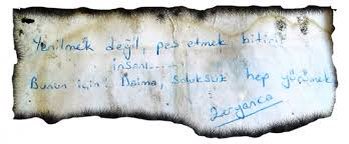 Yenilmek değil, pes etmek bitirir
insanı.....
Bunun için! Daima, soluksuz hep yürümek